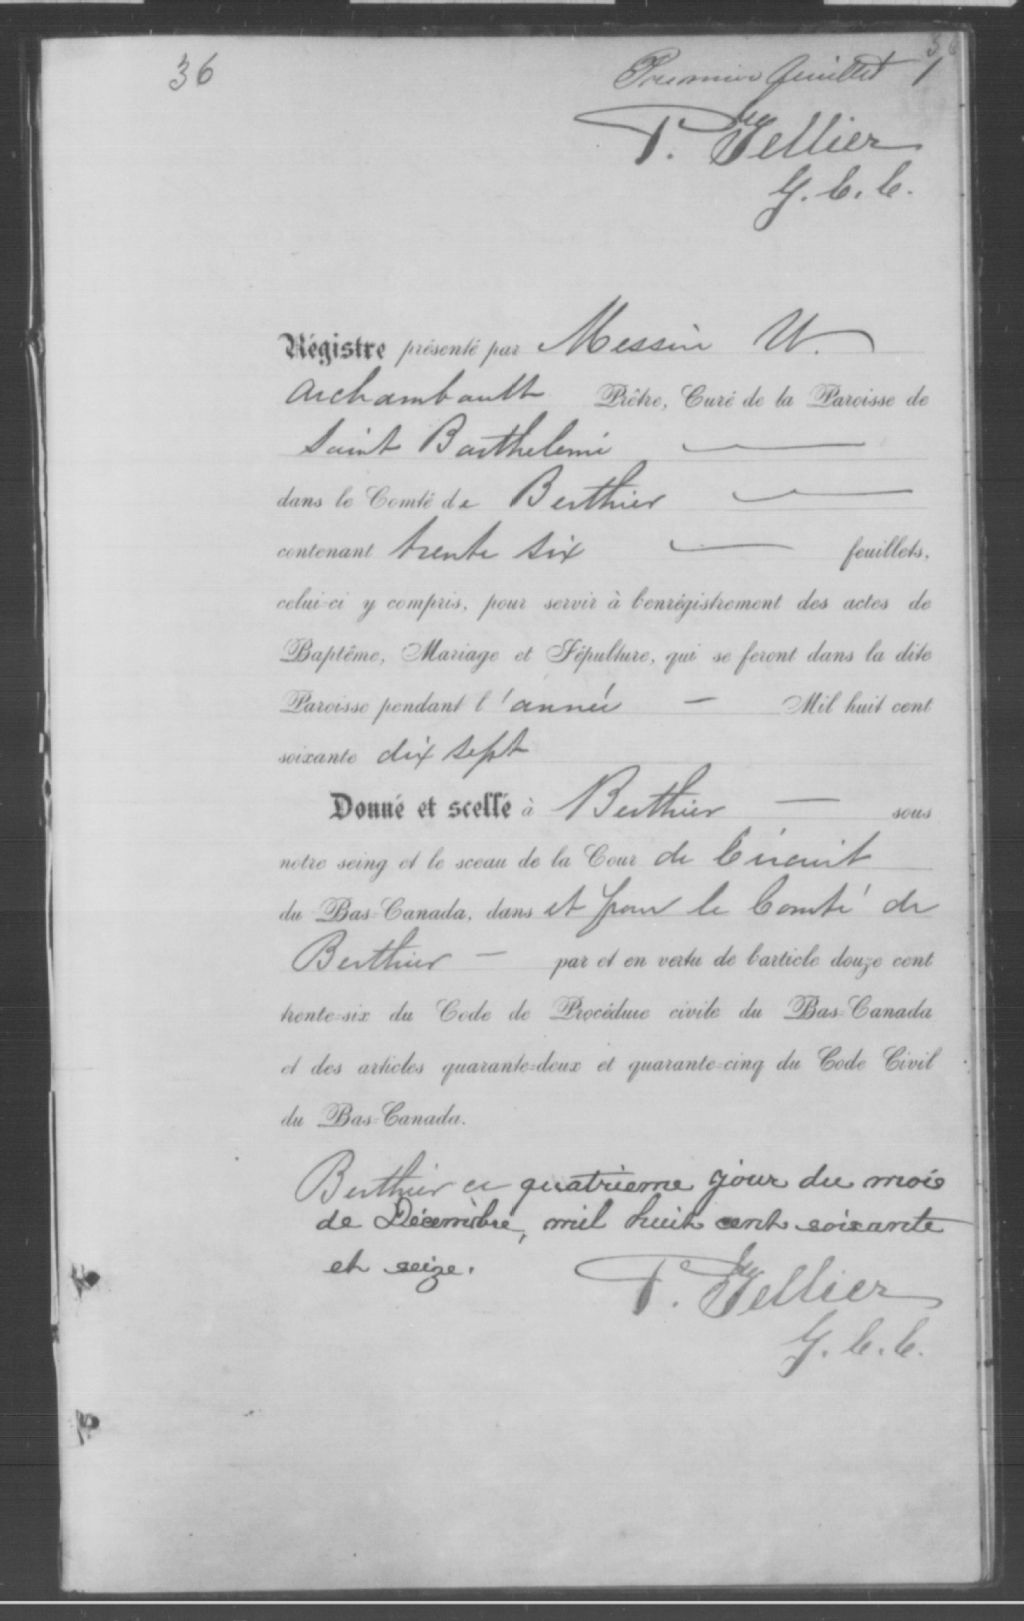 36
36
Premier feuillet 1
P. Tellier
G. C. C.
Régistre présenté par Messire U.
Archambault Prêtre, Curé de la Paroisse de
Saint Barthelemi
dans le Comté de Berthier
contenant trente six feuillets,
celui-ci y compris, pour servir à l'enrégistrement des actes de
Baptême, Mariage et Sépulture, qui se feront dans la dite
Paroisse pendant l'année — Mil huit cent
soixante dix sept
Donné et scellé à Berthier — sous
notre seing et le sceau de la Cour de Circuit
du Bas-Canada, dans et pour le Comté de
Berthier — par et en vertu de l'article douze cent
trente-six du Code de Procédure civile du Bas-Canada
et des articles quarante-deux et quarante-cinq du Code Civil
du Bas-Canada.
Berthier ce quatrieme jour du mois
de Décembre, mil huit cent soixante
et seize.
P. Tellier
G. C. C.